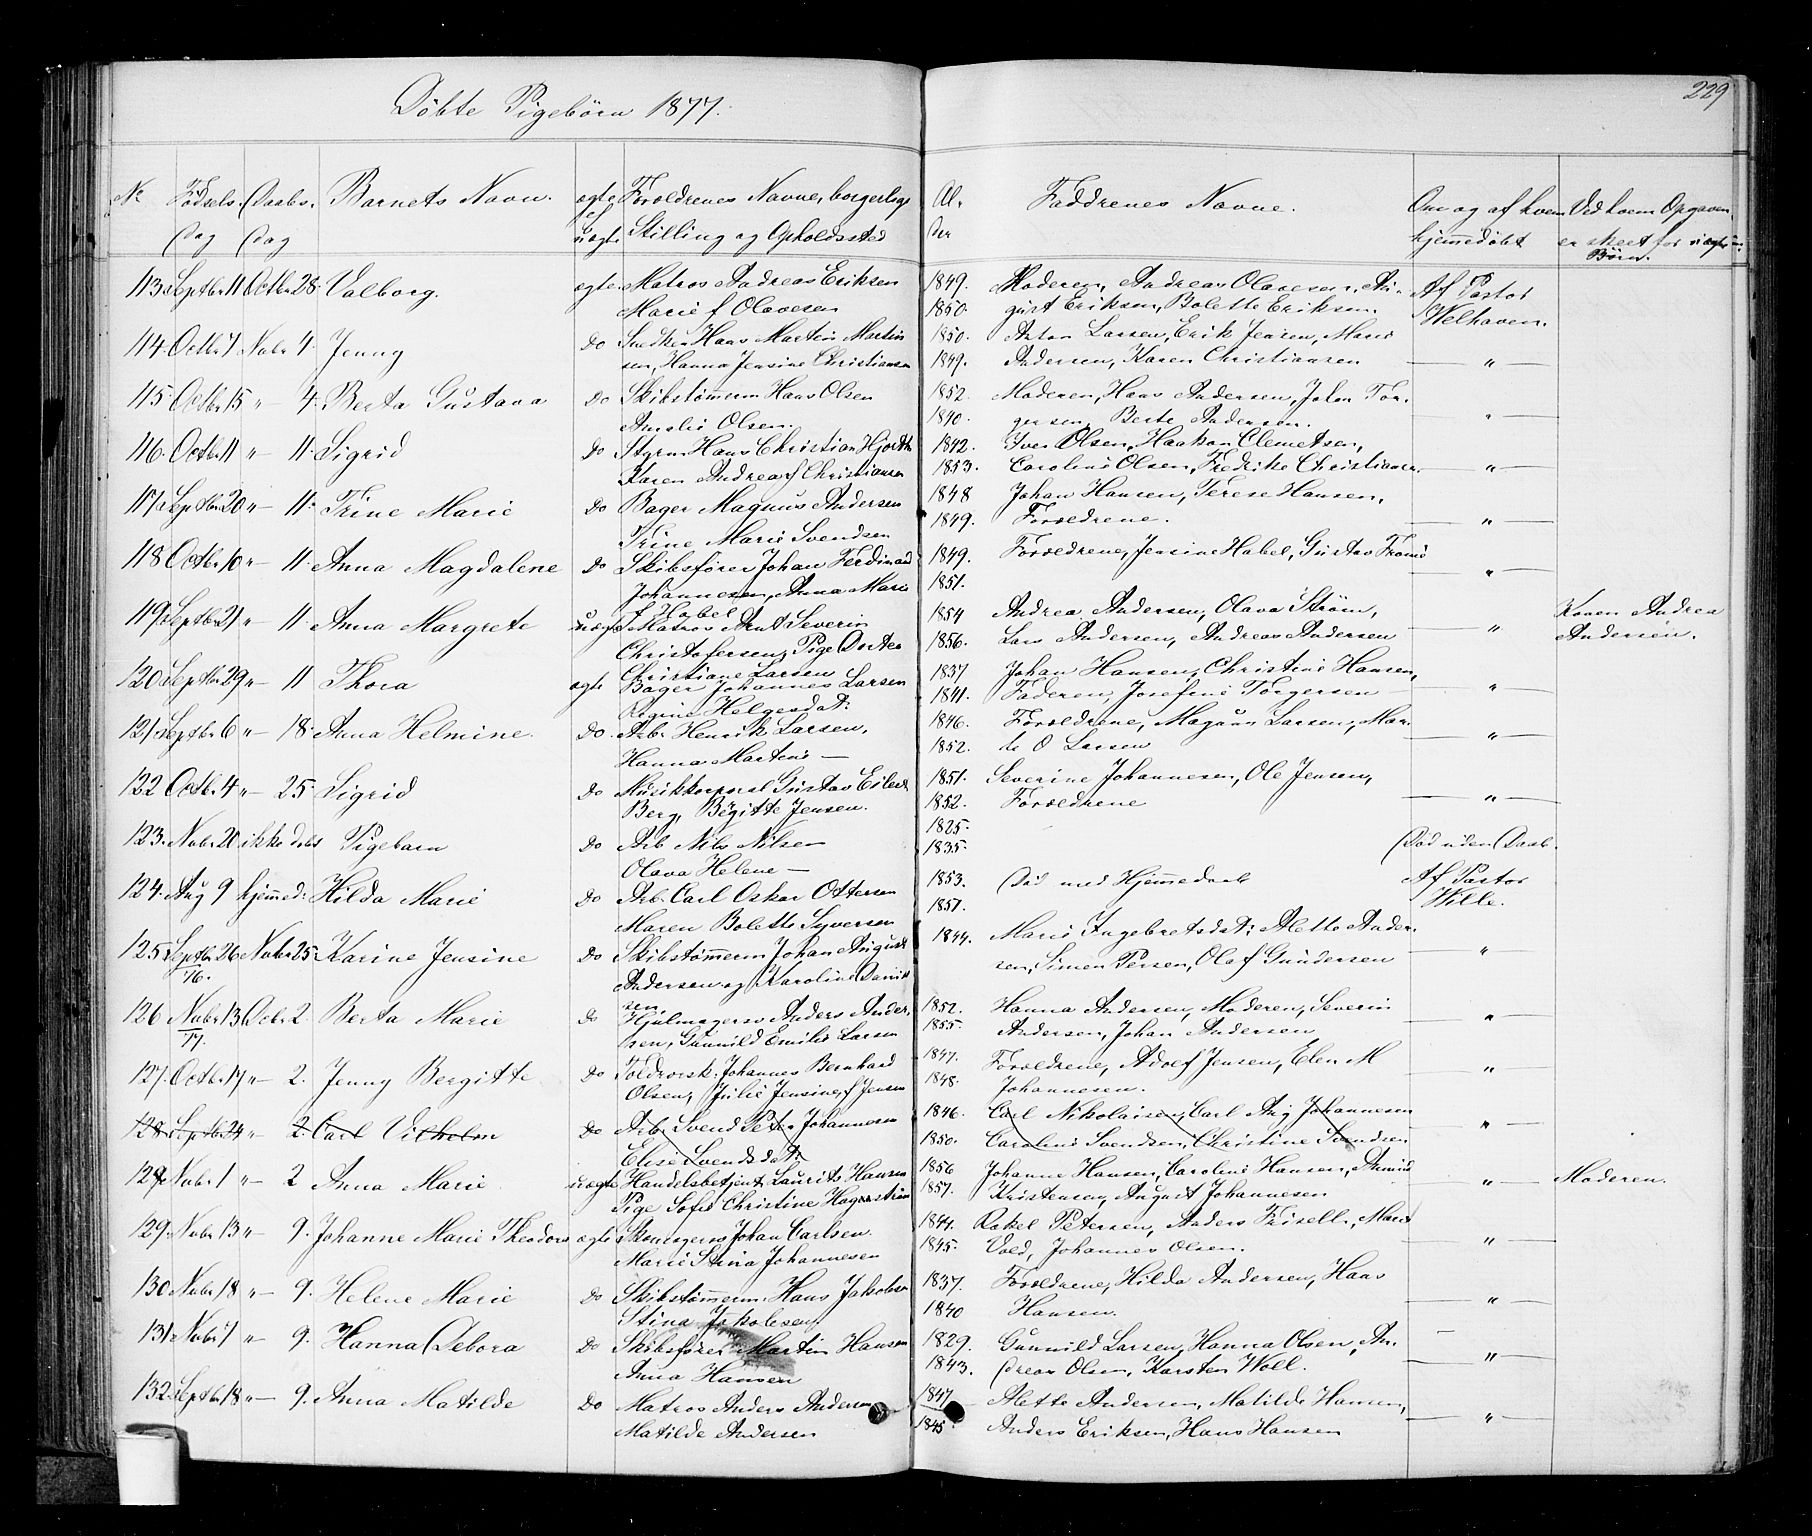 Döbte Pigebörn 1877.
229
No Födsels Dag Daabs Dag Barnets Navn. ægte el uægte Forældrenes Navne, borgerlige Stilling og Opholdssted Al. der Faddrenes Navne. Om og af hvem hjemmedöbt Ved hvem Opgaven er skeet for uægte Börn.
113. Septbr 11 Octbr 28. Valborg. ægte. Matros Andreas Eriksen 1849. Moderen, Andreas Olavesen, Au- Af Pastor
Marie f Olavesen 1850. gust Eriksen, Bolette Eriksen. Welhaven.
114. Octbr 7 Nvbr 4. Jenny Do Snedker Hans Martin Martin 1850. Anton Larsen, Erik Jensen, Marie
sen, Hanna Jensine Christiansen 1849. Andersen, Karen Christiansen — " —
115. Octbr 15 " 4. Berta Gustava Do Skibstömmerm Hans Olsen 1852. Moderen, Hans Andersen, John Tor-
Amalie Olsen. 1840. gersen, Berte Andersen. — " —
116. Octbr 11 " 11. Sigrid Do Styrm Hans Christian Hjorth 1842. Iver Olsen, Haakon Clemetsen,
Karen Andrea f Christiansen 1853. Caroline Olsen, Fredrike Christiansen — " —
117. Septbr 20 " 11. Trine Marie Do Bager Magnus Andersen 1848 Johan Hansen, Terese Hansen,
Trine Marie Svendsen 1849. Forældrene. — " —
118. Octbr 10 " 11. Anna Magdalene Do Skibsförer Johan Ferdinand 1849. Forældrene, Jensine Habel, Gustav
Johannesen, Anna Marie 1851. — " —
f Habel
119. Septbr 21 " 11. Anna Margrete uægte Matros Arnt Severin 1854 Andrea Andersen, Olava Ström, Karen Andrea
Christofersen, Pige Dortea 1856. Lars Andersen, Andreas Andersen — " — Andersen.
Christiane Larsen
120. Septbr 29 " 11 Thora ægte Bager Johannes Larsen 1837 Johan Hansen, Christine Hansen,
Regine Helgesdat: 1841. Faderen, Josefine Torgersen — " —
121. Septbr 6 " 18. Anna Helmine. Do. Arb. Henrik Larsen, 1846. Forældrene, Magnus Larsen, Mar-
Hanna Martine — 1852. te O Larsen — " —
122 Octbr 4 " 25 Sigrid Do Musikkorporal Gustav Eilert 1851. Severine Johannesen, Ole Jensen,
Berg, Begitte Jensen. 1852. Forældrene — " —
123. Nvbr 20 ikke döbt Pigebarn Do Arb Nils Nilsen 1825. Död uden Daab.
Olava Helene — 1835.
124. Aug 9 hjemmed: Hilda Marie Do Arb. Carl Oskar Ottersen 1853. Död med Hjemmedaab Af Pastor
Maren Bolette Syversen 1851. Wille.
125 Septbr 26 Nvbr 25 Karine Jensine Do Skibstömmerm Johan August 1844. Marie Ingebretsdat: Alette Ander-
/76. Andersen og Karoline David sen, Simen Persen, Olaf Gundersen — " —
sen
126 Nvbr 13 Dcbr 2. Berta Marie Do Hjulmagersv Anders Ander 1852. Hanna Andersen, Moderen, Severin
/77. sen, Gunnild Emilie Larsen 1855. Andersen, Johan Andersen — " —
127. Octbr 17 " 2. Jenny Bergitte Do Toldrorsk. Johannes Bernhard 1847. Forældrene, Adolf Jensen, Elen M
Olsen, Julie Jensine f Jensen 1848. Johannesen. — " —
128. Septbr 24 " 2. Carl Vilhelm Do Arb. Svend Peter Johannesen 1846. Carl Nikolaisen, Carl Aug Johannesen
Elise Svendsdat: 1850. Caroline Svendsen, Christine Svendsen — " —
128 Nvbr 1 " 2 Anna Marie uægte Handelsbetjent Laurits Hansen 1856 Johanne Hansen, Caroline Hansen, — " — Moderen.
Pige Sofie Christine Hagerström 1857. Kristensen, August Johannesen
129. Nvbr 13 " 9. Johanne Marie Theodora ægte Skomagersv Johan Carlsen. 1844. Rakel Petersen, Anders Frisell, Marie
Marie Stina Johannesen 1845. Vold, Johannes Olsen. — " —
130 Nvbr 18 " 9. Helene Marie Do Skibstömmerm Hans Jakobsen 1837. Forældrene, Hilda Andersen, Hans
Stina Jakobsen 1840 Hansen. — " —
131. Nvbr 7 " 9. Hanna Debora Do Skibsförer Martin Hansen 1829. Gunnild Larsen, Hanna Olsen, An-
Anna Hansen 1843. dreas Olsen, Karsten Woll. — " —
132. Septbr 18 " 9. Anna Matilde Do Matros Anders Andersen 1847 Alette Andersen, Matilde Hansen,
Matilde Andersen 1845. Anders Eriksen, Hans Hansen — " —